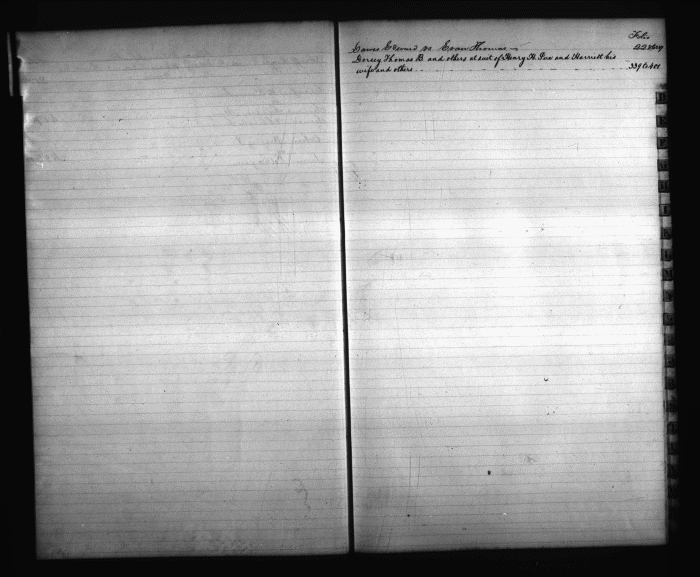 Folio
Edward vs Evan Thomas
Dorsey Thomas B and others at suit of Henry H. and Harriett his
wife and others 339 to 401